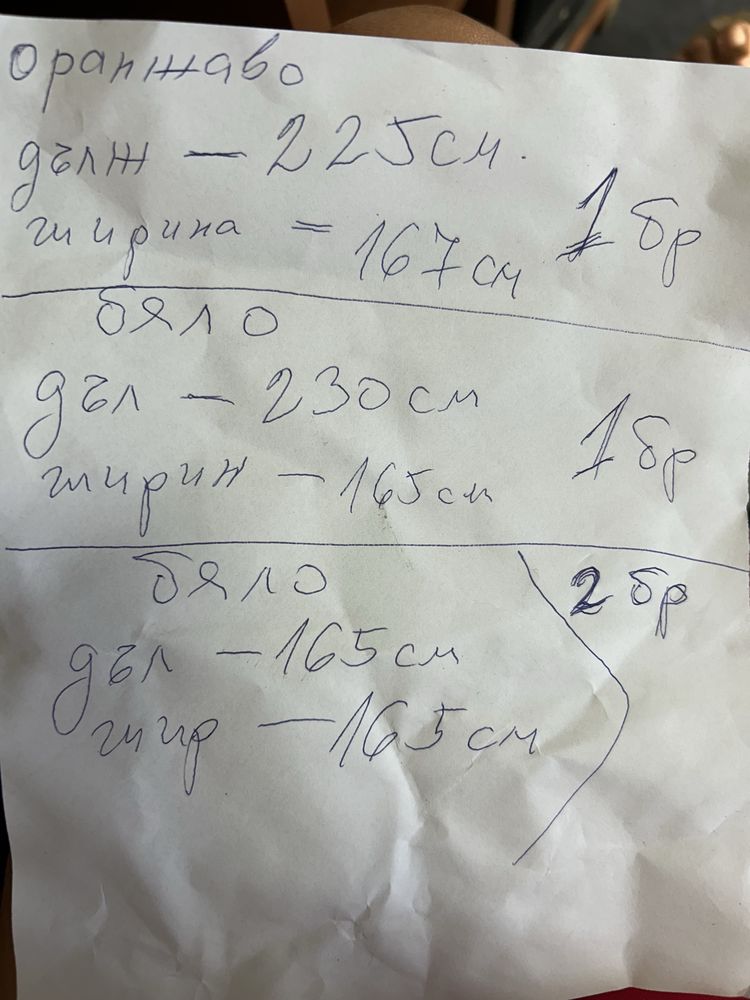 оранжаво
дълж — 225см.
ширина = 167см
1 бр
бяло
дъл — 230см
ширин — 165см
1 бр
бяло
2 бр
дъл — 165см
шир — 165см